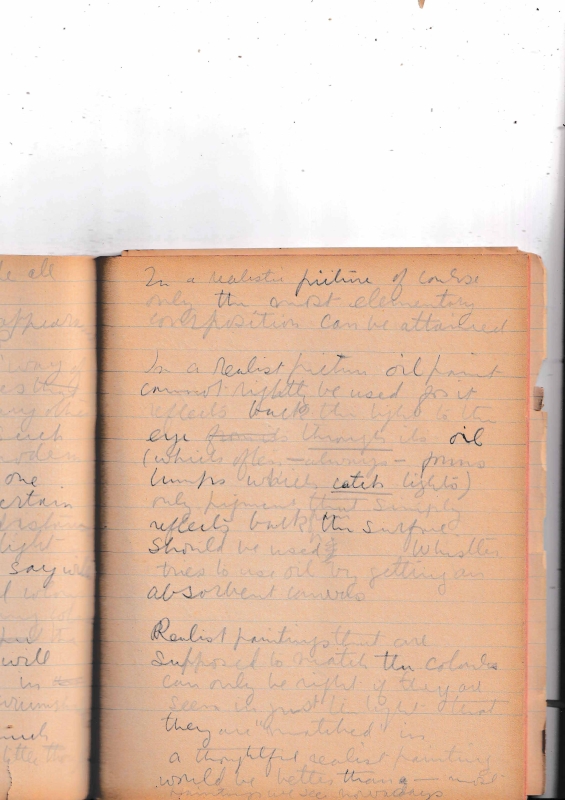 de all
appears
way
any othe
such
modern
one
certain
light
say
will
in
such
In a realistic picture of course
only the most elementary
composition can be attained
In a Realist picture oil paint
cannot rightly be used for it
reflects back the light to the
eye through its oil
(which often — always — forms
lumps which catch lights)
only pigment that simply
reflects back the surface
should be used. Whistler
tries to use oil by getting an
absorbent canvas
Realist paintings that are
supposed to match the colours
can only be right if they are
seen in just the light that
they are "matched" in
a thoughtful realist painting
would be better than a — most
paintings we see nowadays